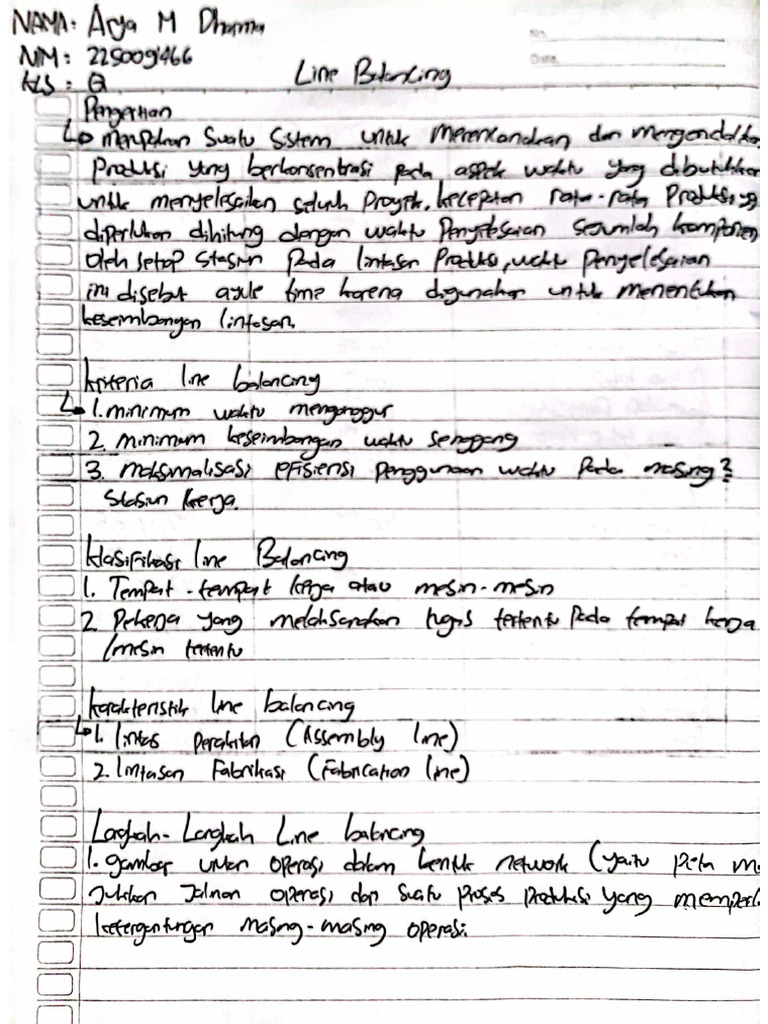 NAMA: Arya M Dharma
No.
NIM: 225009466
Date.
KLS: Q
Line Balancing
Pengertian
merupakan suatu sistem untuk merencanakan dan mengendalikan
Produksi yang berkonsentrasi pada aspek waktu yang dibutuhkan
untuk menyelesaikan seluruh Proyek, kecepatan rata-rata Produksi yg
diperlukan dihitung dengan waktu Penyelesaian sejumlah komponen
Oleh setiap stasiun pada lintasan Produksi, waktu Penyelesaian
ini disebut cycle time karena digunakan untuk menentukan
keseimbangan lintasan.
kriteria line balancing
1. minimum waktu menganggur
2. minimum keseimbangan waktu senggang
3. maksimalisasi efisiensi penggunaan waktu pada masing2
stasiun kerja.
klasifikasi line Balancing
1. Tempat-tempat kerja atau mesin-mesin
2. Pekerja yang melaksanakan tugas tertentu pada tempat kerja
/mesin tertentu
karakteristik line balancing
1. lintas perakitan (Assembly line)
2. lintasan Fabrikasi (Fabrication line)
Langkah-Langkah Line balancing
1. gambar urutan operasi dalam bentuk network (yaitu peta
Jalinan operasi dari suatu proses produksi yang
ketergantungan masing-masing operasi.